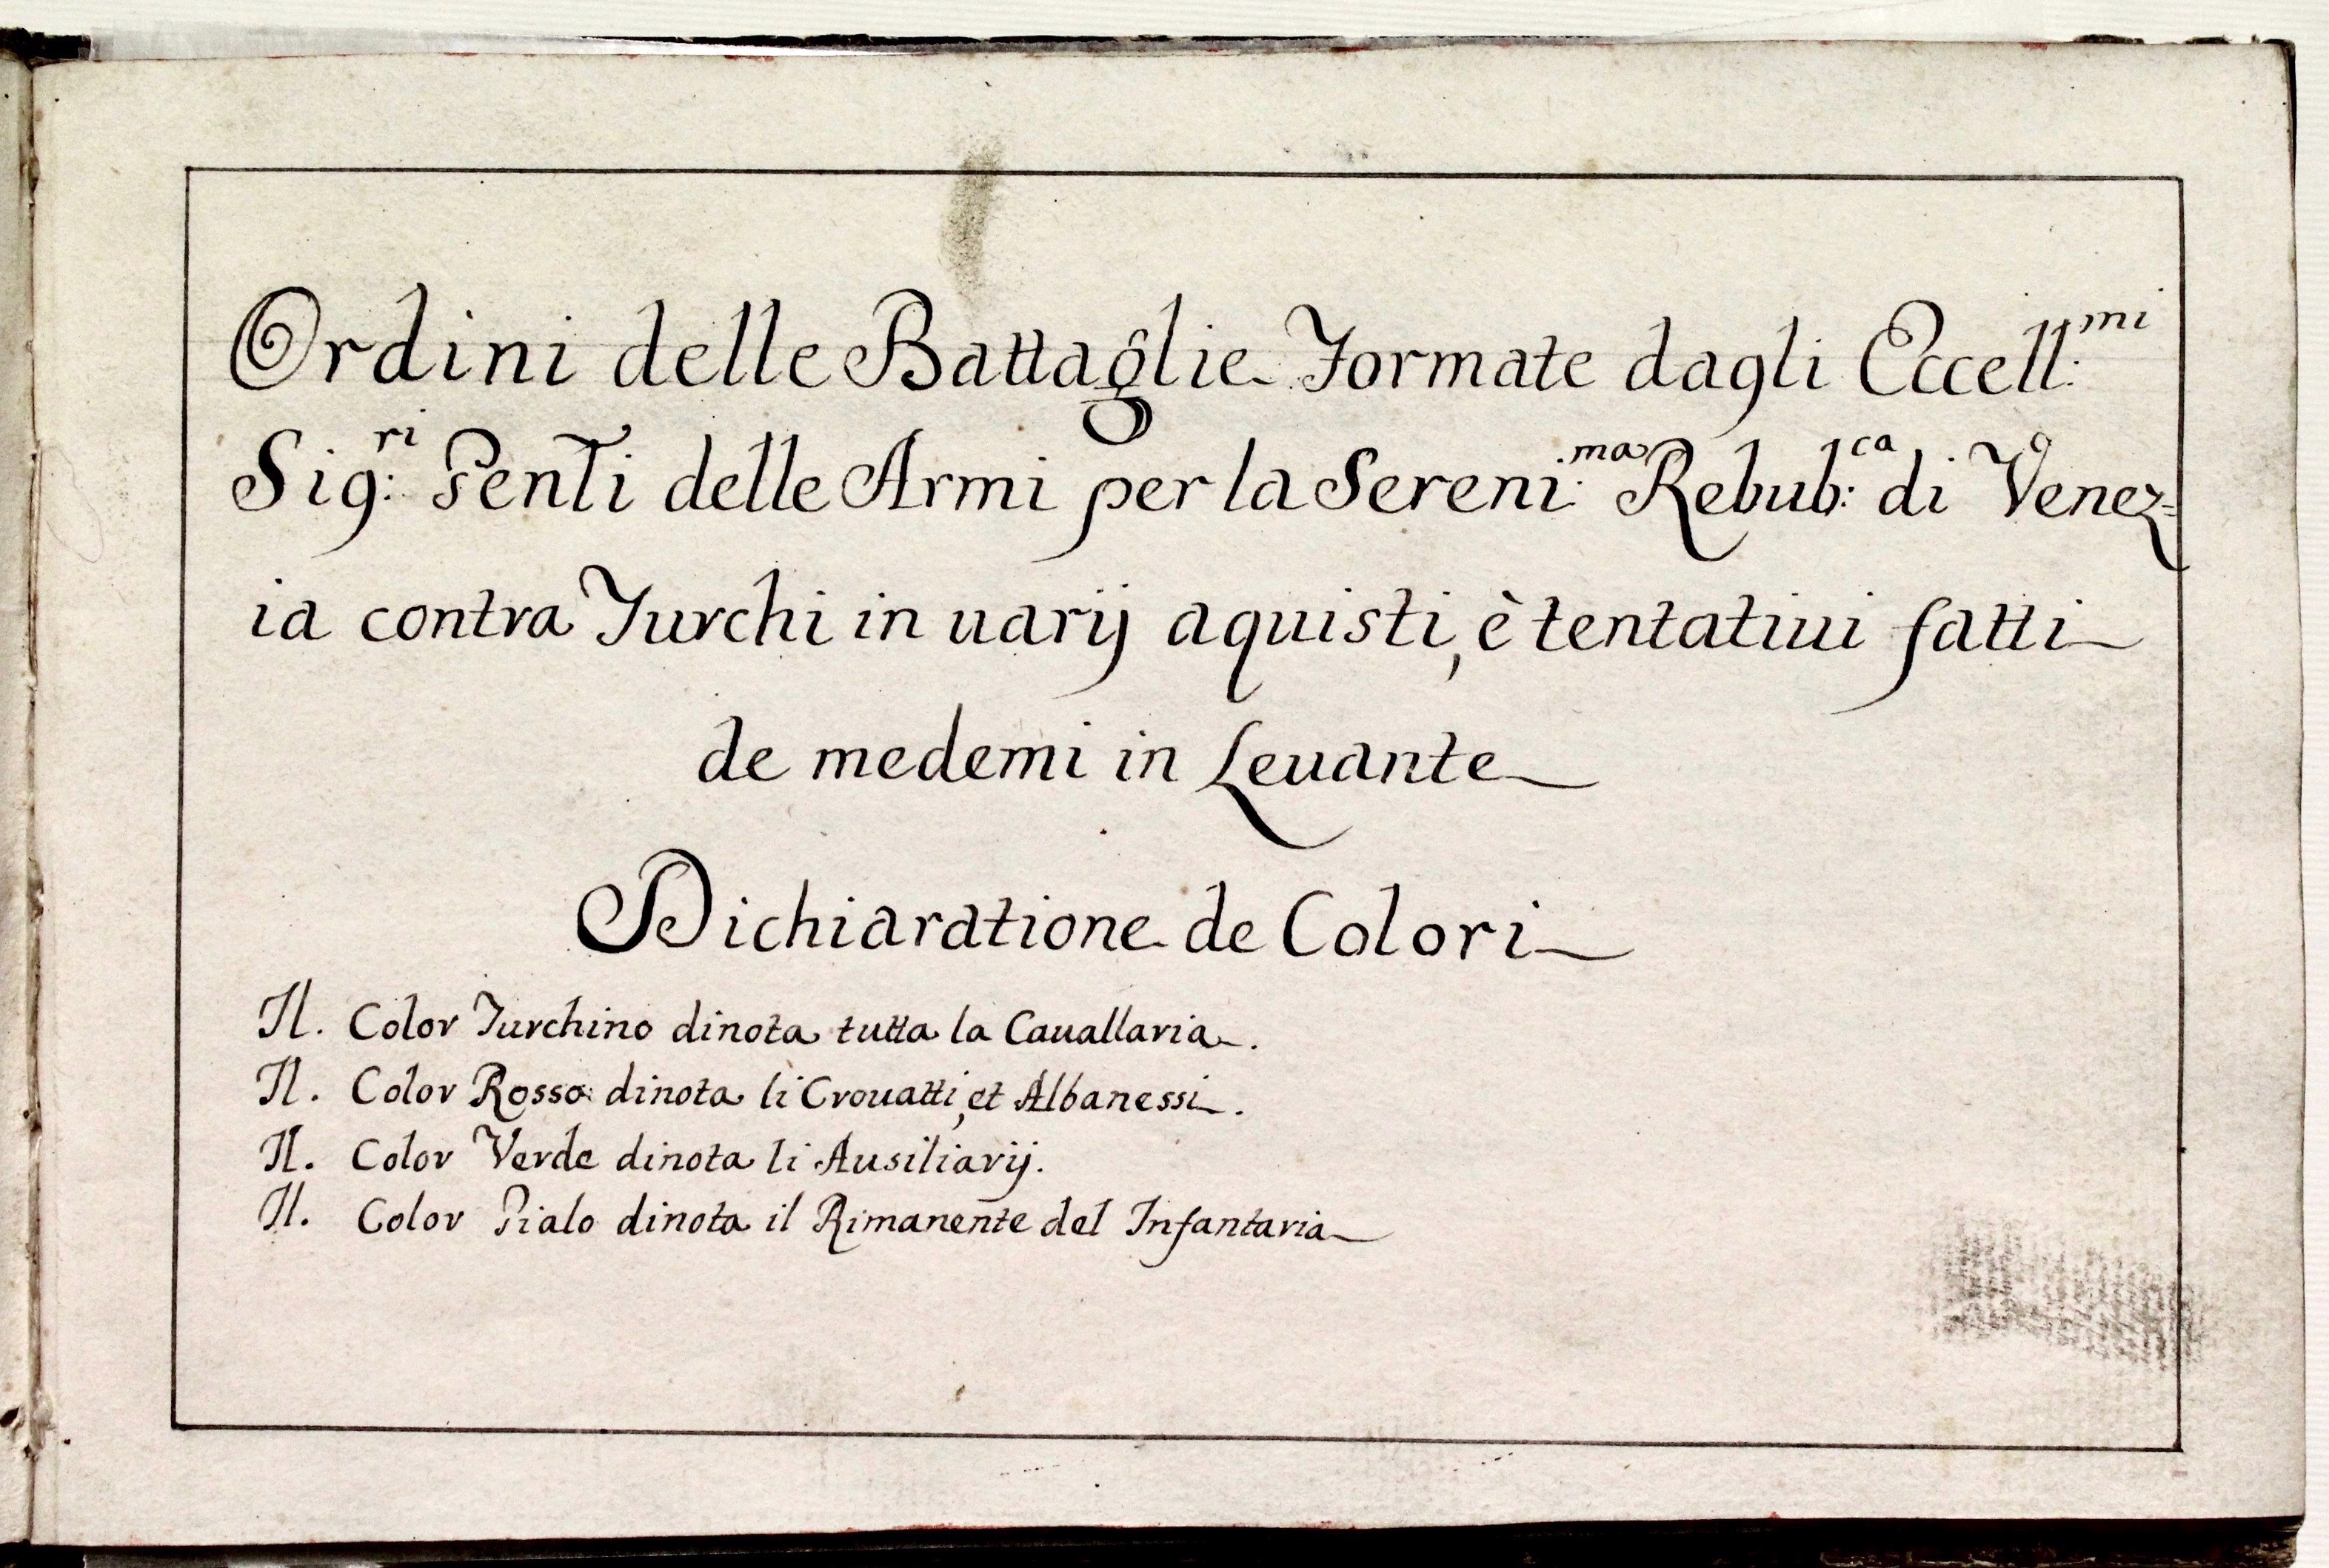 Ordini delle Battaglie Formate dagli Eccell:mi
Sig:ri Genti delle Armi per la Sereni:ma Rebub:ca di Venez=
ia contra Turchi in uarij aquisti, è tentatiui fatti
de medemi in Leuante
Dichiaratione de Colori
Il. Color Turchino dinota tutta la Cauallaria.
Il. Color Rosso dinota li Crouatti, et Albanessi.
Il. Color Verde dinota li Ausiliarij.
Il. Color Gialo dinota il Rimanente del Infantaria